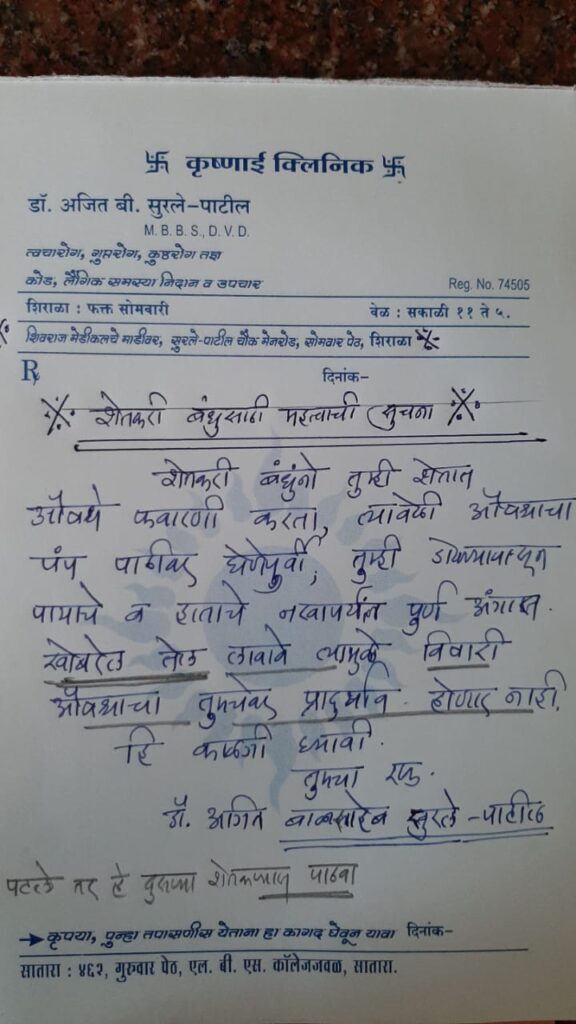 卐 कृष्णाई क्लिनिक 卐
डॉ. अजित बी. सुरले-पाटील
M. B. B. S., D. V. D.
त्वचारोग, गुप्तरोग, कुष्ठरोग तज्ञ
कोड, लैंगिक समस्या निदान व उपचार
Reg. No. 74505
शिराळा : फक्त सोमवारी
वेळ : सकाळी ११ ते ५.
शिवराज मेडीकलचे माडीवर, सुरले-पाटील चौक मेनरोड, सोमवार पेठ, शिराळा
Rx
दिनांक-
शेतकरी बंधुसाठी महत्वाची सुचना
शेतकरी बंधुंनो तुम्ही शेतात
औषधे फवारणी करता, त्यावेळी औषधाचा
पंप पाठीवर घेणेपुर्वी, तुम्ही डोक्यापासून
पायाचे व हाताचे नखापर्यंत पुर्ण अंगास
खोबरेल तेल लावावे त्यामुळे विषारी
औषधाचा तुमचेवर प्रादुर्भाव होणार नाही,
हि काळजी घ्यावी.
तुमचा
डॉ. अजित बाळासाहेब सुरले-पाटील
पटले तर हे दुसऱ्या शेतकऱ्यास पाठवा
कृपया, पुन्हा तपासणीस येताना हा कागद घेवून यावा दिनांक-
सातारा : ४६२, गुरुवार पेठ, एल. बी. एस. कॉलेजजवळ, सातारा.